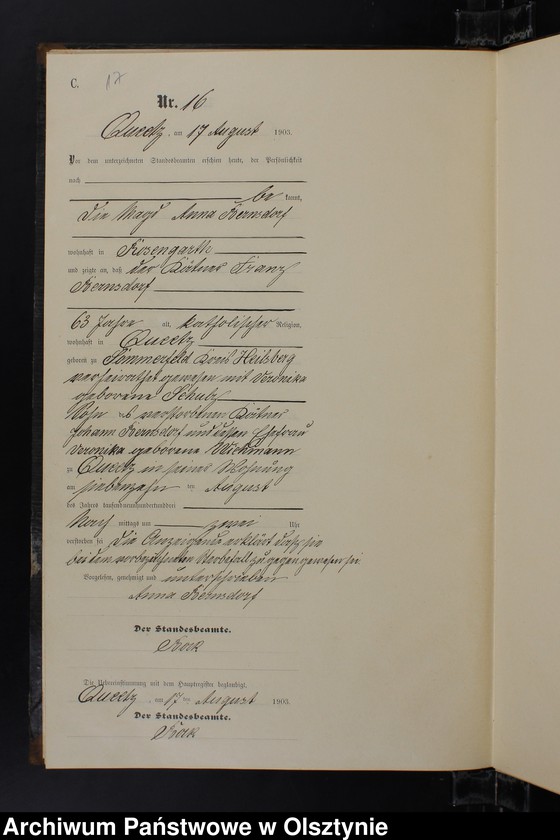 C. 17
Nr. 16
Queetz, am 17 August 1903.
Vor dem unterzeichneten Standesbeamten erschien heute, der Persönlichkeit
nach
be kannt,
die Magd Anna Bernsdorf
wohnhaft in Rosengarth
und zeigte an, daß der Kätner Franz
Bernsdorf
63 Jahre alt, katholischer Religion,
wohnhaft in Queetz
geboren zu Sommerfeld Kreis Heilsberg
verheirathet gewesen mit Veronika
geborene Schulz
Sohn des verstorbenen Kätner
Johann Bernsdorf und dessen Ehefrau
Veronika geborene Wichmann
zu Queetz in seiner Wohnung
am siebenzehn ten August
des Jahres tausendneunhundertdrei
Nach mittags um zwei Uhr
verstorben sei Die Anzeigende erklärt dass sie
bei dem vorbezeichneten Sterbefall zugegen gewesen sei
Vorgelesen, genehmigt und unterschrieben
Anna Bernsdorf
Der Standesbeamte.
Die Uebereinstimmung mit dem Hauptregister beglaubigt.
Queetz, am 17 ten August 1903.
Der Standesbeamte.
Archiwum Państwowe w Olsztynie